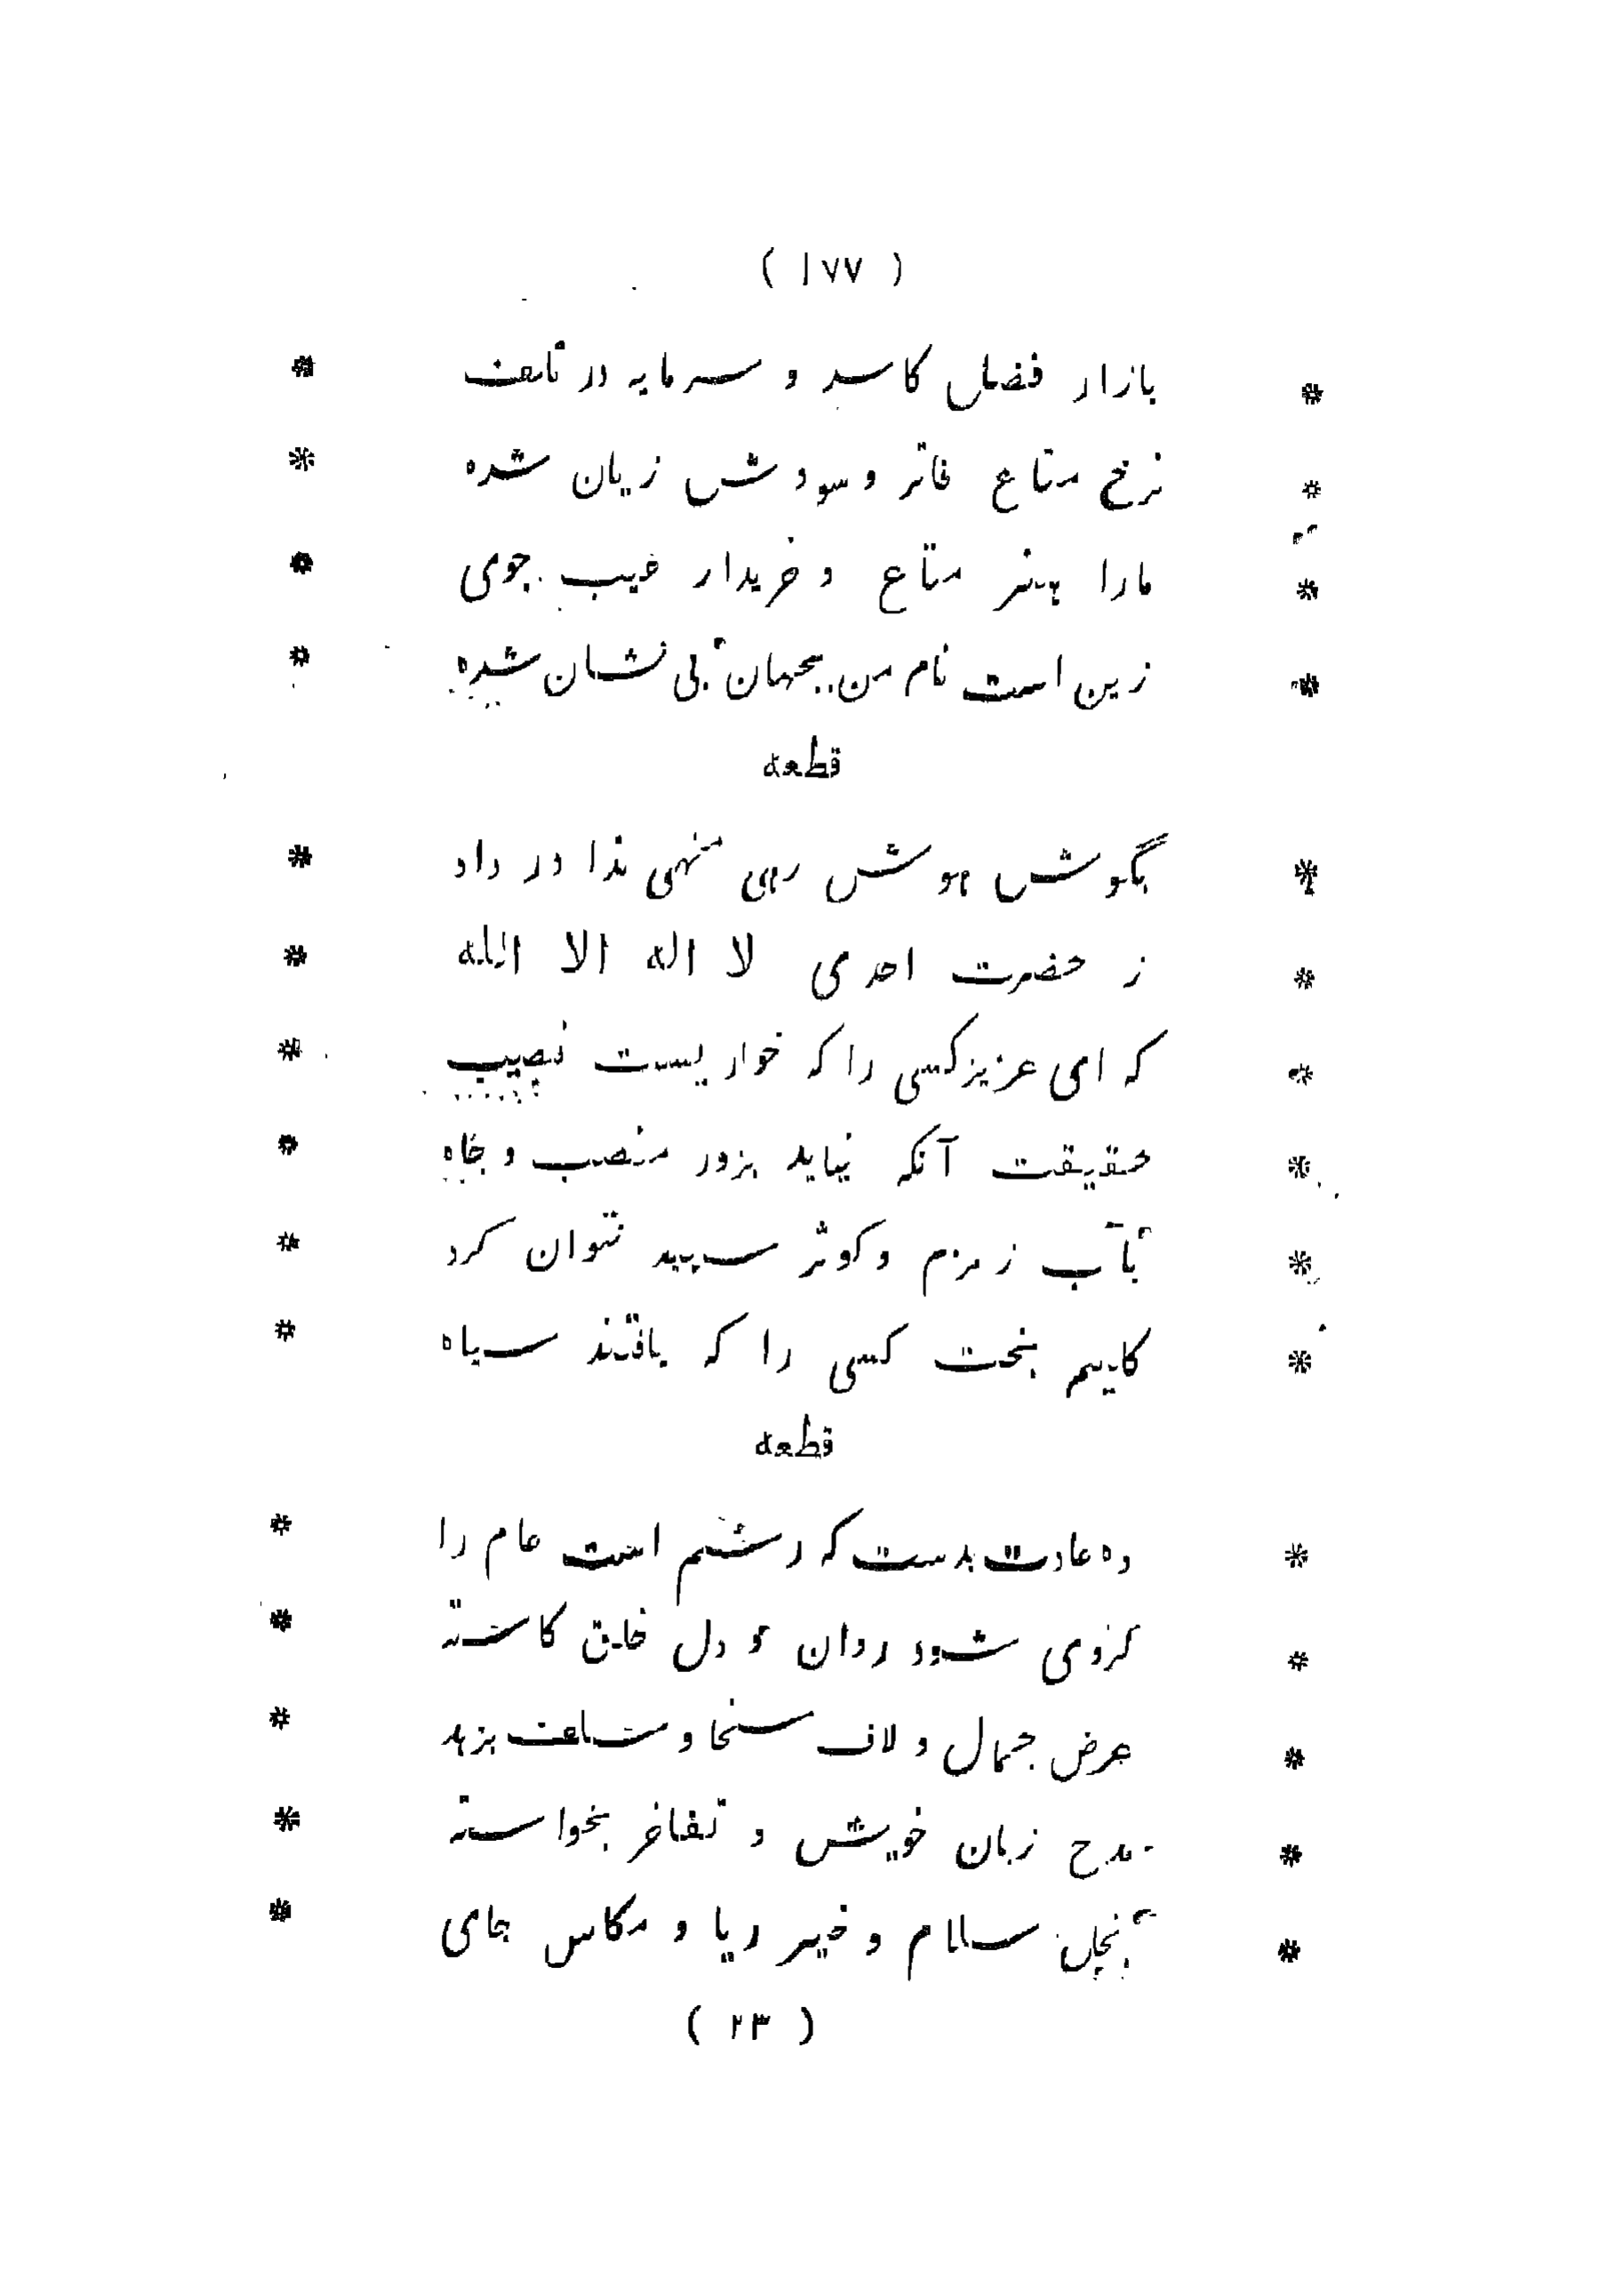 ( ١٧٧ )
* بازار فضل کاسد و سرمایه در تلف *
* نرخ متاع فاتر و سودش زیان شده *
* مارا هنر متاع و خریدار عیب جوی *
* زین است نام من بجهان بی نشان شده *
قطعه
* بگوش هوش رهی منهی ندا در داد *
* ز حضرت احدی لا اله الا الله *
* که ای عزیز کسی را که خواریست نصیب *
* حقیقت آنکه نیابد بزور منصب و جاه *
* بآب زمزم و کوثر سپید نتوان کرد *
* کلیم بخت کسی را که بافتند سیاه *
قطعه
* ده عادت بدست که رسم است عام را *
* کزوی شود روان و دل خلق کاسته *
* عرض جمال و لاف سخا و سلف بزهد *
* مدح زبان خویش و تفاخر بخواسته *
* بخل سلام و خیر ریا و مکاس جای *
( ٢٣ )